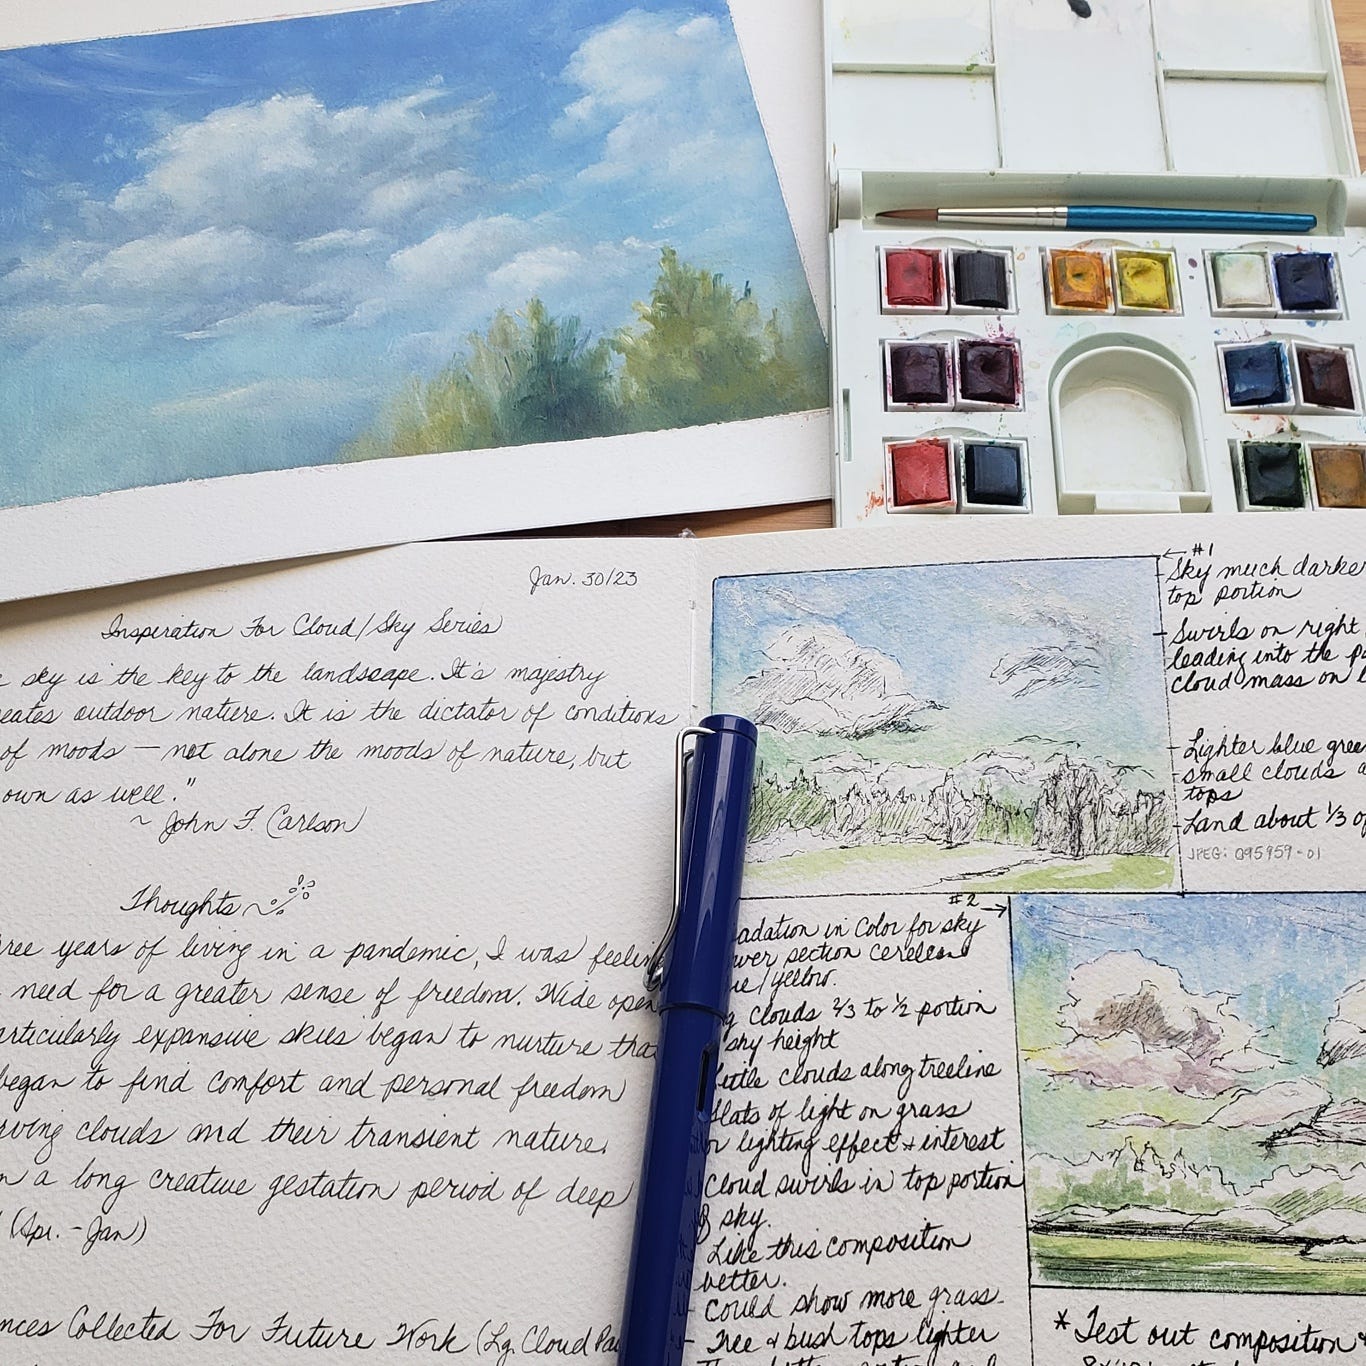 Jan. 30/23
Inspiration For Cloud/Sky Series
sky is the key to the landscape. It's majestry
eates outdoor nature. It is the dictator of conditions
of moods — not alone the moods of nature, but
own as well."
~ John F. Carlson
Thoughts
ree years of living in a pandemic, I was feeling
need for a greater sense of freedom. Wide open
articularly expansive skies began to nurture that
began to find comfort and personal freedom
rving clouds and their transient nature.
n a long creative gestation period of deep
(Apr. - Jan)
nces Collected For Future Work (Lg. Cloud Pa
#1
- Sky much darke
top portion
- Swirls on right
leading into the
cloud mass on
- Lighter blue gree
- small clouds a
tops
- Land about 1/3 of
JPEG: 095959-01
#2
adation in Color for sky
wer section cerelean
ue/yellow.
g clouds 2/3 to 1/2 portion
sky height
Little clouds along treeline
Slats of light on grass
or lighting effect & interest
Cloud swirls in top portion
of sky.
Like this composition
better.
- Could show more grass.
- Tree & bush tops lighter
* Test out composition &